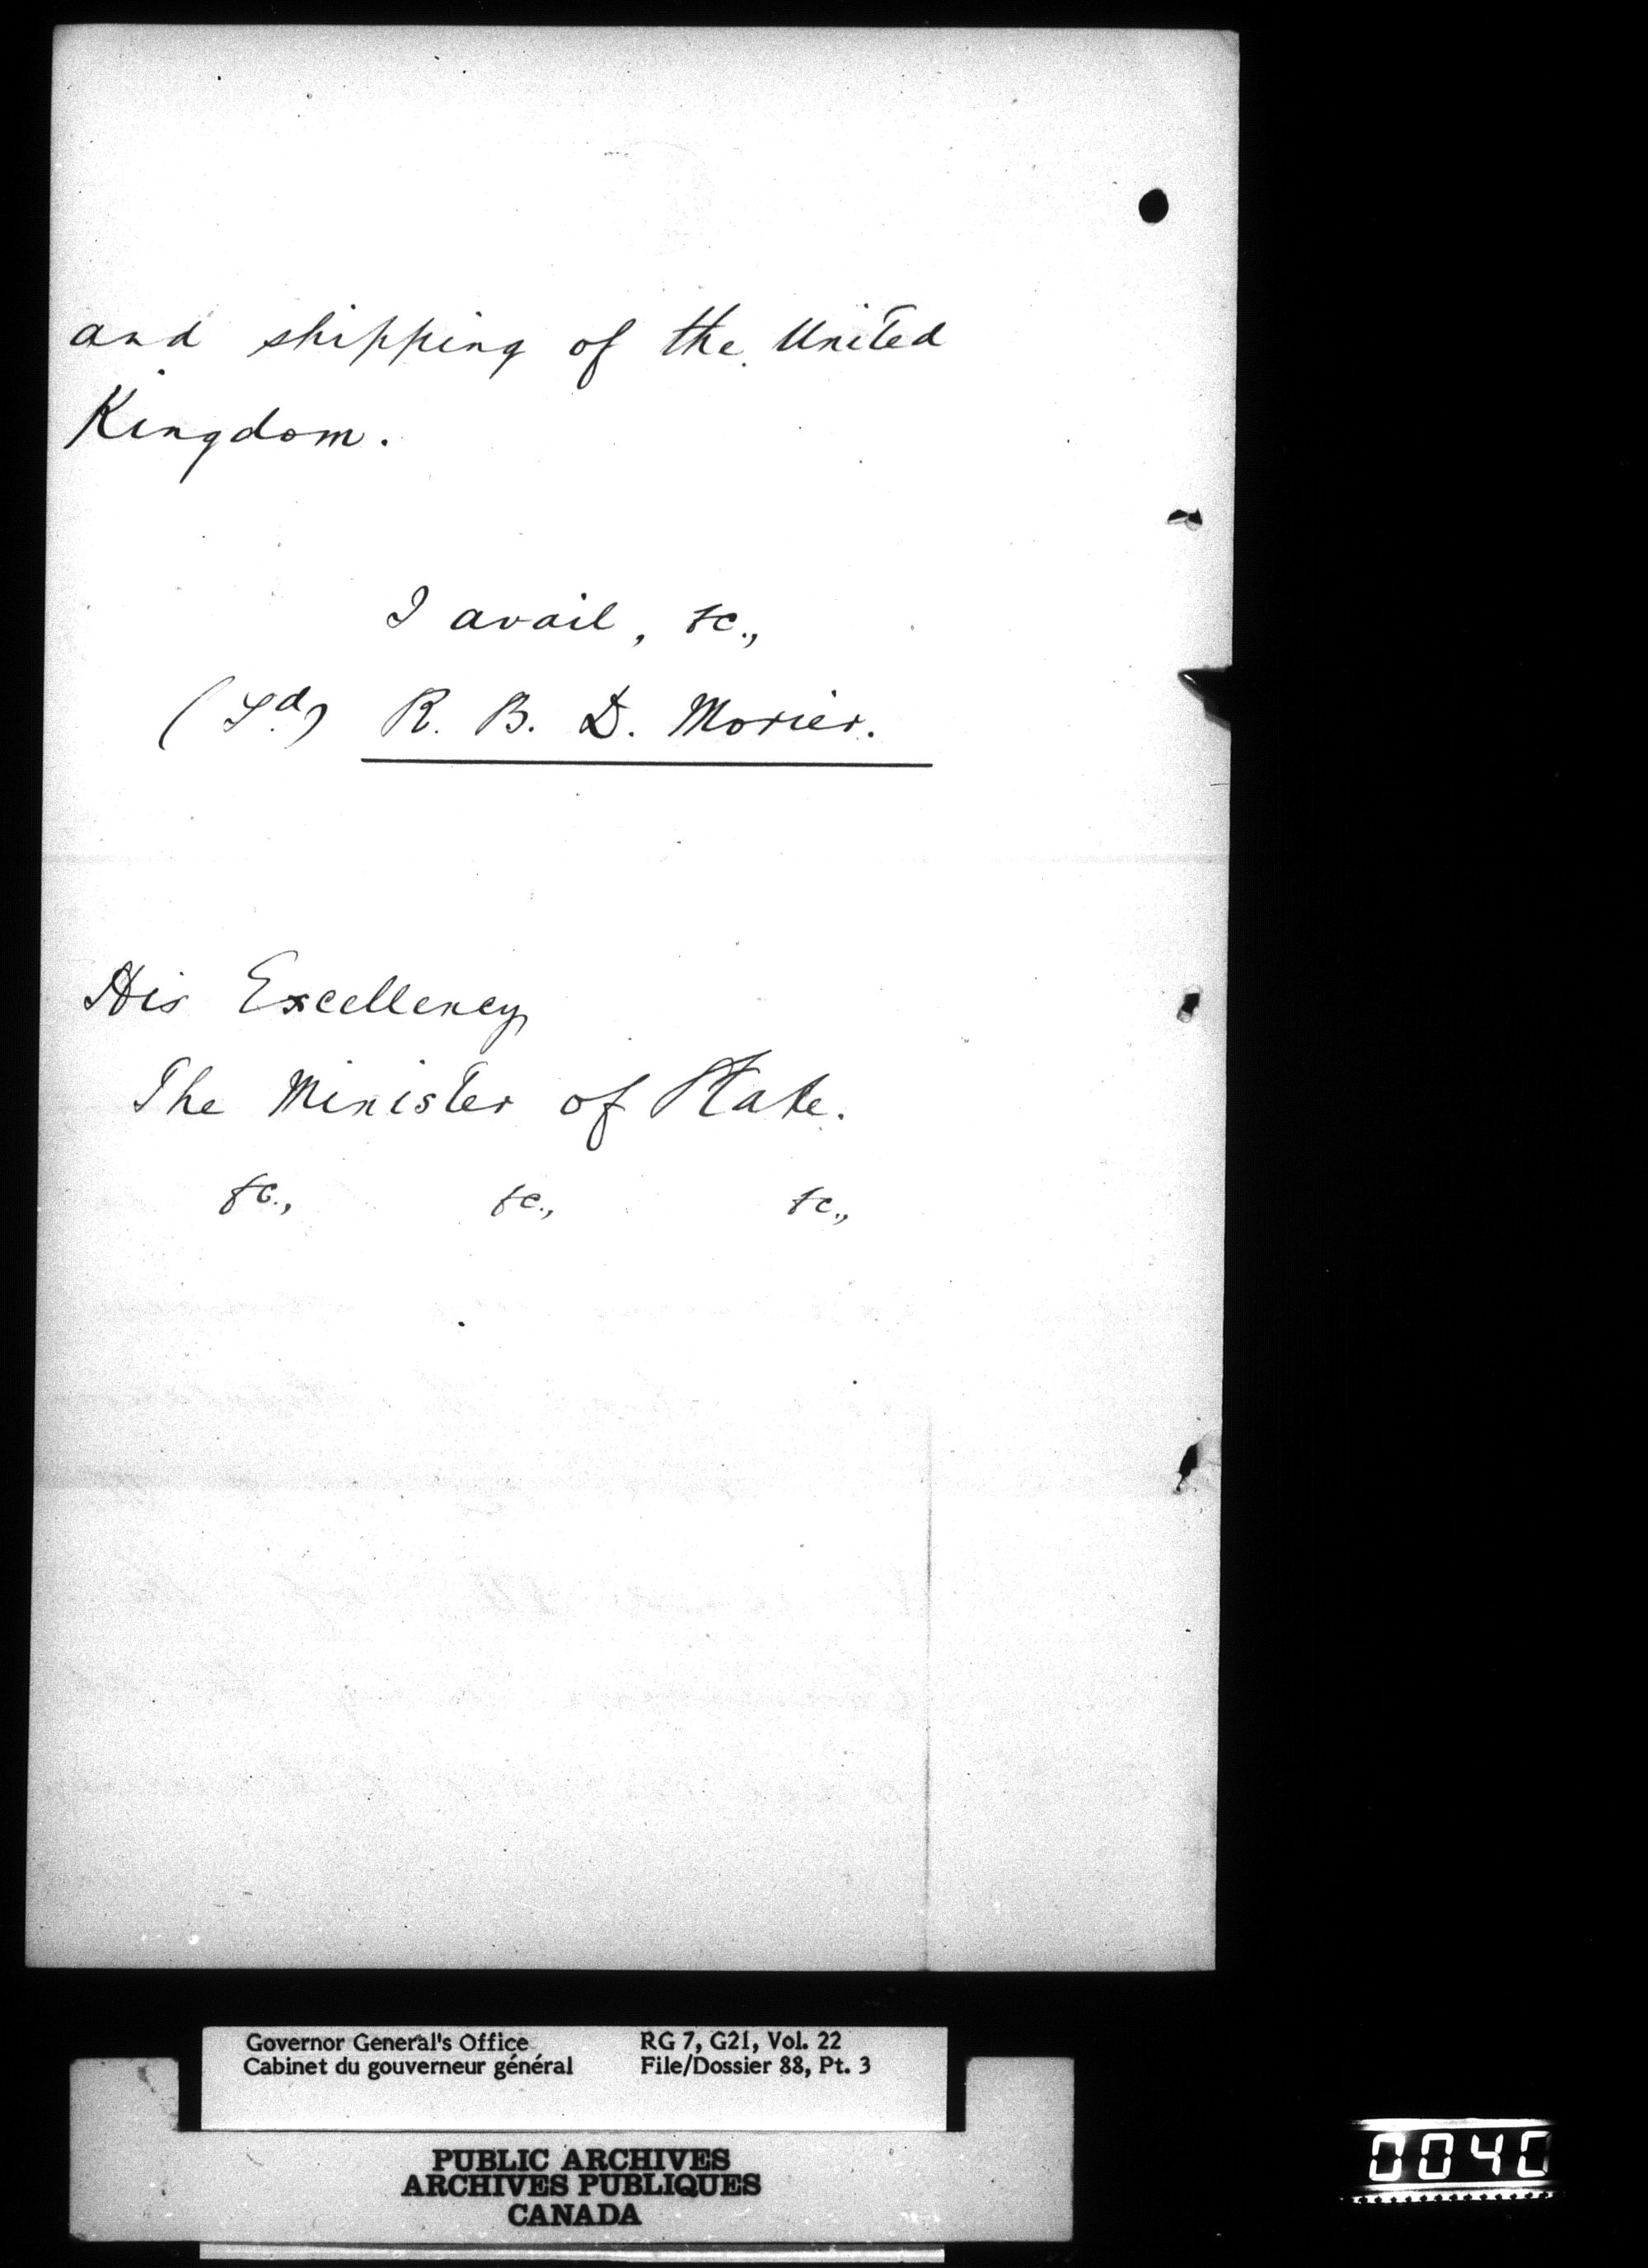 and shipping of the United
Kingdom.
I avail, &c.,
(Sd.) R. B. D. Morier.
His Excellency
The Minister of State.
&c., &c., &c.,
Governor General's Office RG 7, G21, Vol. 22
Cabinet du gouverneur général File/Dossier 88, Pt. 3
PUBLIC ARCHIVES
ARCHIVES PUBLIQUES
CANADA
0040